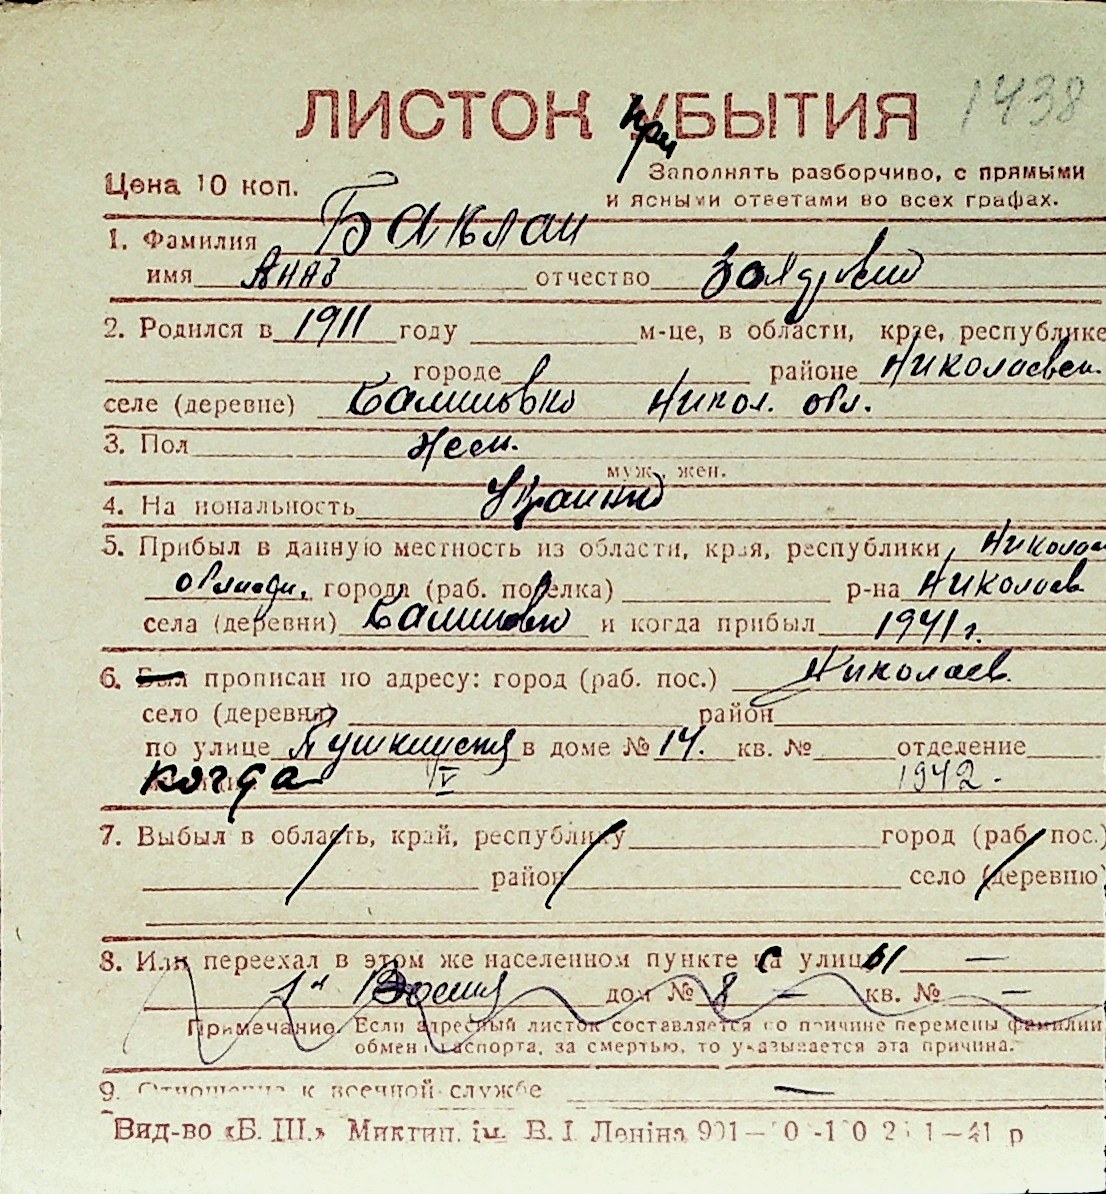 ЛИСТОК УБЫТИЯ 1438
при
Цена 10 коп.
Заполнять разборчиво, с прямыми
и ясными ответами во всех графах.
1. Фамилия Баклан
имя отчество
2. Родился в 1911 году м-це, в области, крае, республике
городе районе Николаевск.
селе (деревне) Балшовка Никол. обл.
3. Пол жен.
муж., жен.
4. Национальность
5. Прибыл в данную местность из области, края, республики Николаев
города (раб. поселка) р-на Николаев
села (деревни) и когда прибыл 1941 г.
6. Был прописан по адресу: город (раб. пос.) Николаев
село (деревня) район
по улице в доме № 14. кв. № отделение
когда V 1942.
7. Выбыл в область, край, республику город (раб. пос.)
район село (деревню)
8. Или переехал в этом же населенном пункте с улицы —
дом № 8 — кв. № —
Примечание. Если адресный листок составляется по причине перемены фамилии
обмен паспорта, за смертью, то указывается эта причина.
9. Отношение к военной службе —
Вид-во «Б. Ш.» Миктип. ім. В. І. Леніна